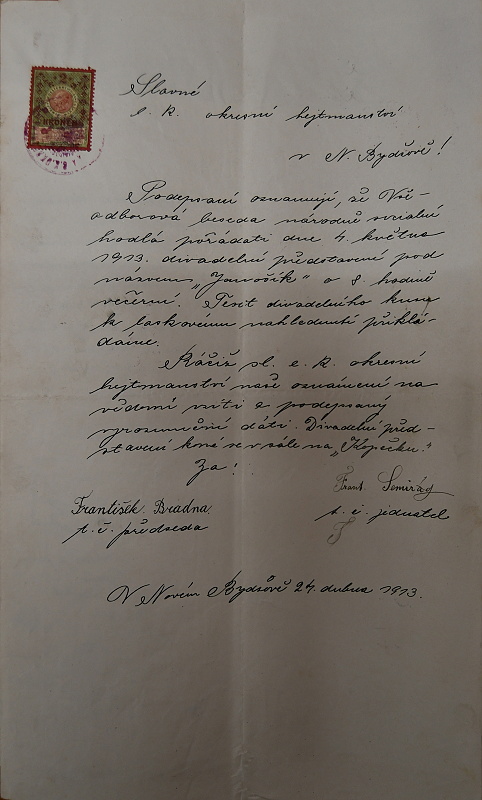 2
KRONEN
Slavné
c. k. okresní hejtmanství
v N. Bydžově!
Podepsaní oznamují, že Vše-
odborová beseda národně sociální
hodlá pořádati dne 4. května
1913. divadelní představení pod
názvem „Janošík“ o 8. hodině
večerní. Text divadelního kusu
k laskavému nahlednutí přiklá-
dáme.
Ráčiž sl. c. k. okresní
hejtmanství naše oznámení na
vědomí vzíti a podepsaný
vyrozumění dáti. Divadelní před-
stavení koná se v sále na „Kopečku.“
Za!
Frant.
František
t. č. jednatel
t. č. předseda
V Novém Bydžově 24. dubna 1913.